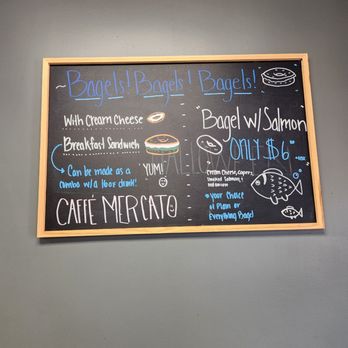 ~Bagels! Bagels! Bagels!
With Cream Cheese
Breakfast Sandwich
Can be made as a
combo w/a 16oz drink!
YUM!
CAFFÉ MERCATO
Bagel w/ Salmon
ONLY $6
Cream Cheese, Capers,
Smoked Salmon, +
red onion
*your Choice
of Plain or
Everything Bagel